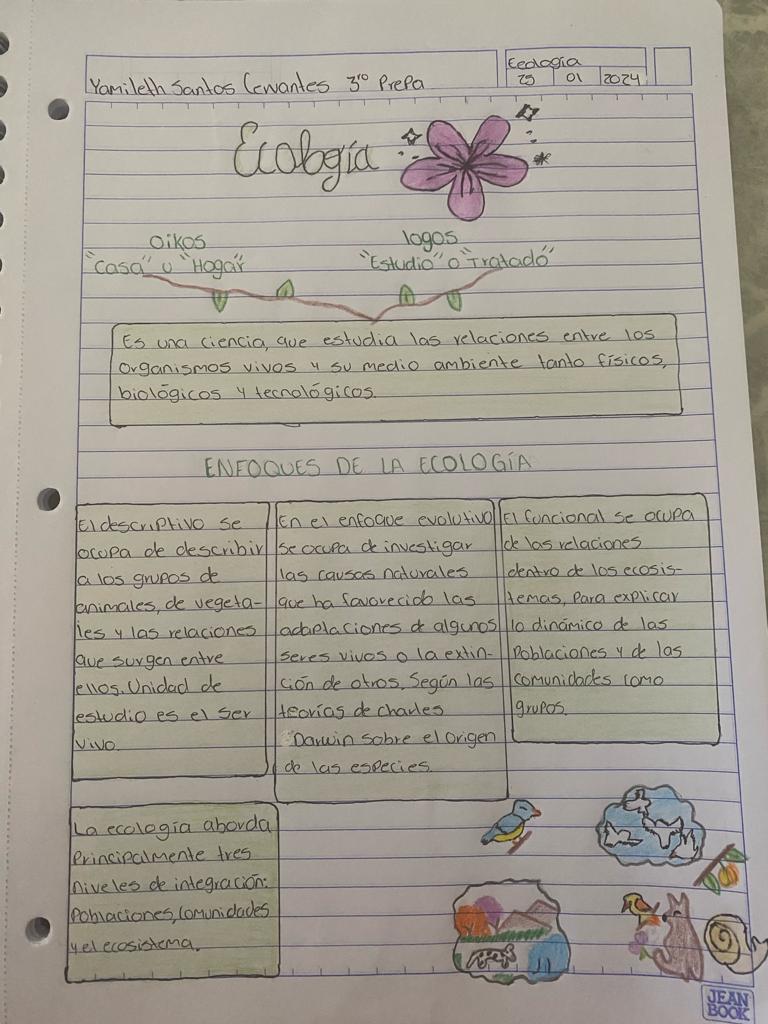 Ecología
Yamileth Santos Cervantes 3ro Prepa
25 01 2024
Ecología
oikos
logos
"Casa" u "Hogar"
"Estudio" o "Tratado"
Es una ciencia, que estudia las relaciones entre los
organismos vivos y su medio ambiente tanto físicos,
biológicos y tecnológicos.
ENFOQUES DE LA ECOLOGÍA
El descriptivo se
ocupa de describir
a los grupos de
animales, de vegeta-
les y las relaciones
que surgen entre
ellos. Unidad de
estudio es el ser
vivo.
En el enfoque evolutivo
se ocupa de investigar
las causas naturales
que ha favorecido las
adaptaciones de algunos
seres vivos o la extin-
ción de otros. Según las
teorías de charles
Darwin sobre el origen
de las especies.
El funcional se ocupa
de las relaciones
dentro de los ecosis-
temas, para explicar
la dinámica de las
poblaciones y de las
comunidades como
grupos.
La ecología aborda
principalmente tres
niveles de integración:
Poblaciones, comunidades
y el ecosistema.
JEAN
BOOK